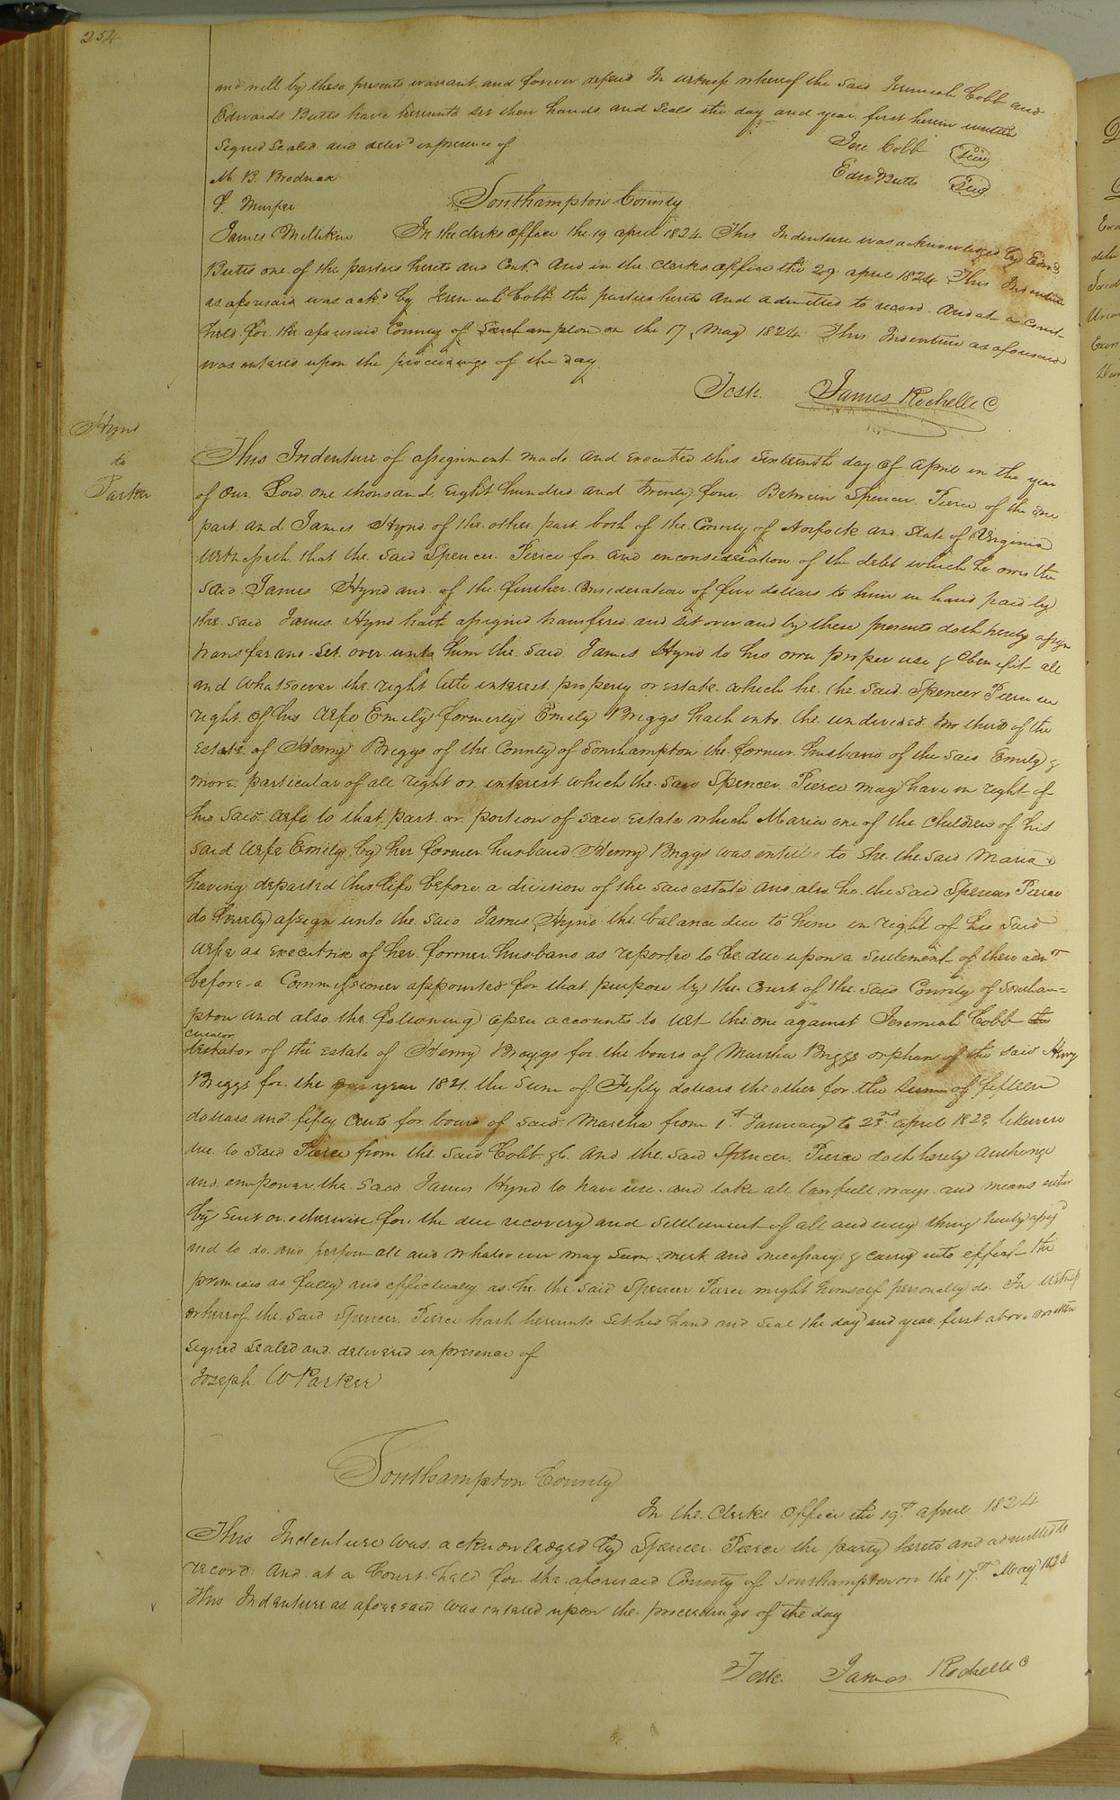 254
and will by these presents warrant and forever defend In witness whereof the said Jeremiah Cobb and
Edwards Butts have hereunto set their hands and seals the day and year first herein written
Signed Sealed and deliv^d in presence of
Jere Cobb Seal
M. B. Brodnax
Edw^d Butts Seal
Southampton County
James Millikin In the clerks office the 19 april 1824 This Indenture was acknowledged by Edw^d
Butts one of the parties hereto and Cont^d And in the clerks office the 29 april 1824 This Indenture
as aforesaid was ack^d by Jeremiah Cobb the parties hereto and admitted to record. And at a Court
held for the aforesaid County of Southampton on the 17 May 1824 This Indenture as aforesaid
was entered upon the proceedings of the day
Teste. James Rochelle C
Hynd
to
Parker
This Indenture of assignment made and executed this Sixteenth day of April in the year
of Our Lord one thousand eight hundred and twenty four Between Spencer Pierce of the one
part and James Hynd of the other part both of the County of Norfolk and State of Virginia
Witnesseth that the said Spencer Pierce for and in consideration of the debt which he owes the
said James Hynd and of the further consideration of five dollars to him in hand paid by
the said James Hynd hath assigned transfered and set over and by these presents doth hereby assign
transfer and set over unto him the said James Hynd to his own proper use & benefit all
and whatsoever the right title interest property or estate which he the said Spencer Pierce in
right of his wife Emily formerly Emily Briggs hath into the undivided two thirds of the
Estate of Henry Briggs of the County of Southampton the former husband of the said Emily &
more particular of all right or interest which the said Spencer Pierce may have in right of
his said wife to that part or portion of said estate which Maria one of the children of his
said wife Emily by her former husband Henry Briggs was entitled to She the said Maria
having departed this life before a division of the said estate and also he the said Spencer Pierce
do hereby assign unto the said James Hynd the balance due to him in right of his said
wife as executrix of her former husband as reported to be due upon a settlement of their adm^or
before a Commissioner appointed for that purpose by the Court of the said County of Southam=
pton and also the following open accounts to wit the one against Jeremiah Cobb the
curator
of the estate of Henry Briggs for the board of Martha Briggs orphan of the said Henry
Briggs for the year 1821 the sum of Fifty dollars the other for the sum of fifteen
dollars and fifty Cents for board of said Martha from 1^st January to 23^rd april 1823 likewise
due to said Pierce from the said Cobb &c. And the said Spencer Pierce doth hereby authorize
and empower the said James Hynd to have use and take all lawfull ways and means either
by suit or otherwise for the due recovery and settlement of all and every thing hereby assg^d
and to do and perform all and whatsoever may seem meet and necessary & carry into effect the
premises as fully and effectually as he the said Spencer Pierce might himself personally do. In witness
whereof the said Spencer Pierce hath hereunto set his hand and seal the day and year first above written
signed sealed and delivered in presence of
Joseph W Parker
Southampton County
In the Clerks Office the 19^th april 1824
This Indenture was acknowledged by Spencer Pierce the party hereto and admitted to
record And at a Court held for the aforesaid County of Southampton on the 17^th May 1824
This Indenture as aforesaid was entered upon the proceedings of the day
Teste. James Rochelle C